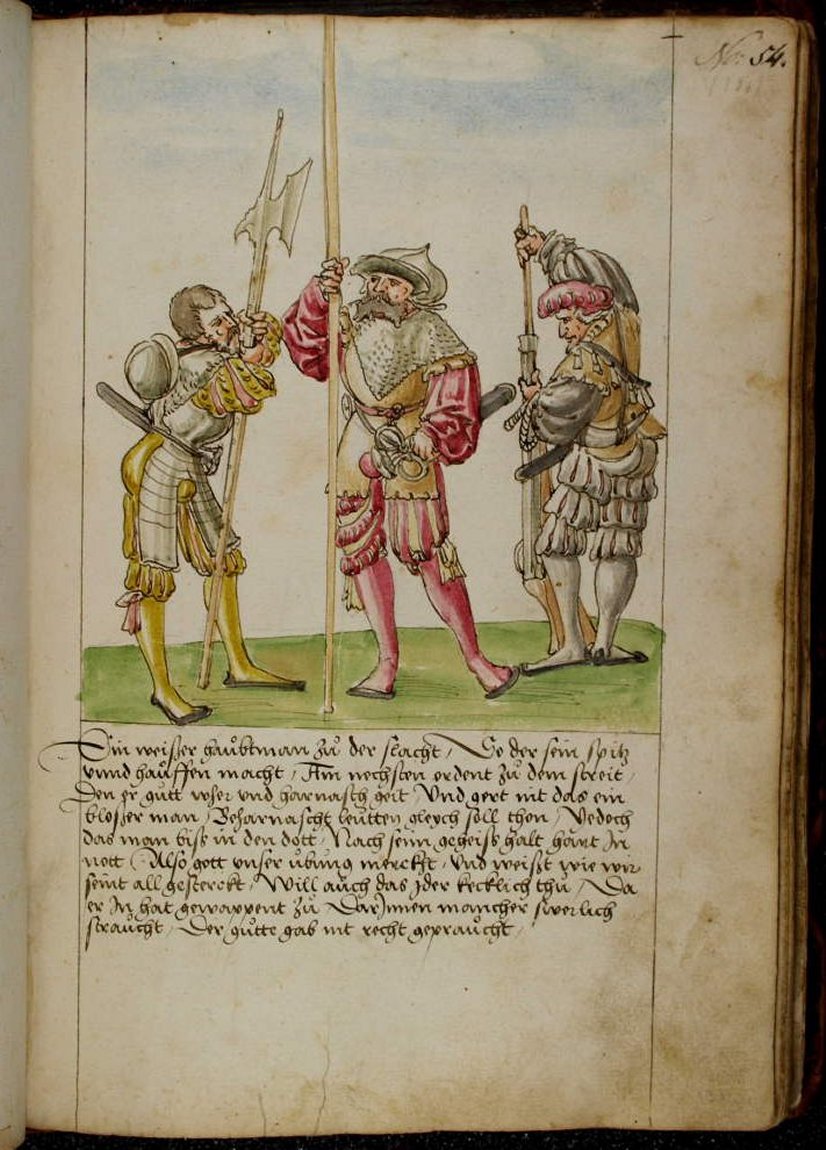 No: 54.
Ein weisser haubtman zu der slacht / So der sein spitz
vnnd hauffen macht / Am nechsten ordent zu dem streit /
Den er gutt wher vnd harnasch geit / Vnd gert nit das ein
blosser man / Beharnascht leutten gleych soll thon / Yedoch
das man biss in den dott / Nach seim geheiss halt hart In
nott / Also gott vnser ubung merckt / Vnd weist wie wir
seint all gesterckt / Will auch das yder kecklich thu / Da
er In hat gewappent zu / Dar Innen mancher swerlich
straucht / Der gutte gab nit recht gepraucht /